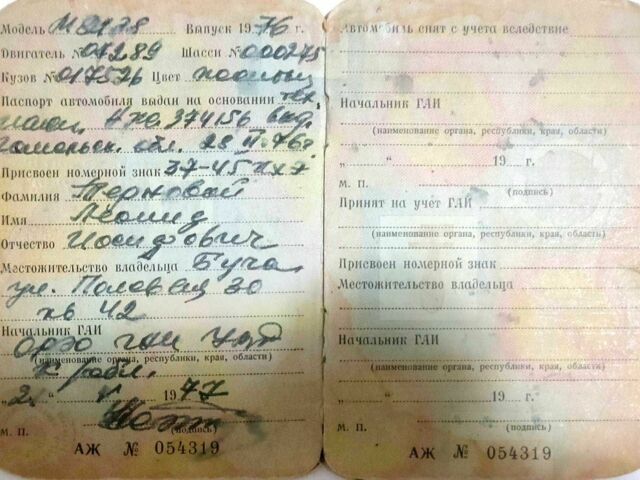 Модель М 2138 Выпуск 1976 г.
Двигатель № 041289 Шасси № 000275
Кузов № 017526 Цвет
Паспорт автомобиля выдан на основании тех
374156
обл. 28 76г
Присвоен номерной знак 37-45
Фамилия Терновой
Имя Леонид
Отчество Иосифович
Местожительство владельца Буча
ул. Полевая 30
кв 42
Начальник ГАИ
ГАИ
(наименование органа, республики, края, области)
"2 " V 1977
М. П. (подпись)
АЖ № 054319
Автомобиль снят с учета вследствие
Начальник ГАИ
(наименование органа, республики, края, области)
" " 19 г.
М. П. (подпись)
Принят на учёт ГАИ
(наименование органа, республики, края, области)
Присвоен номерной знак
Местожительство владельца
Начальник ГАИ
(наименование органа, республики, края, области)
" " 19 г.
М. П. (подпись)
АЖ № 054319